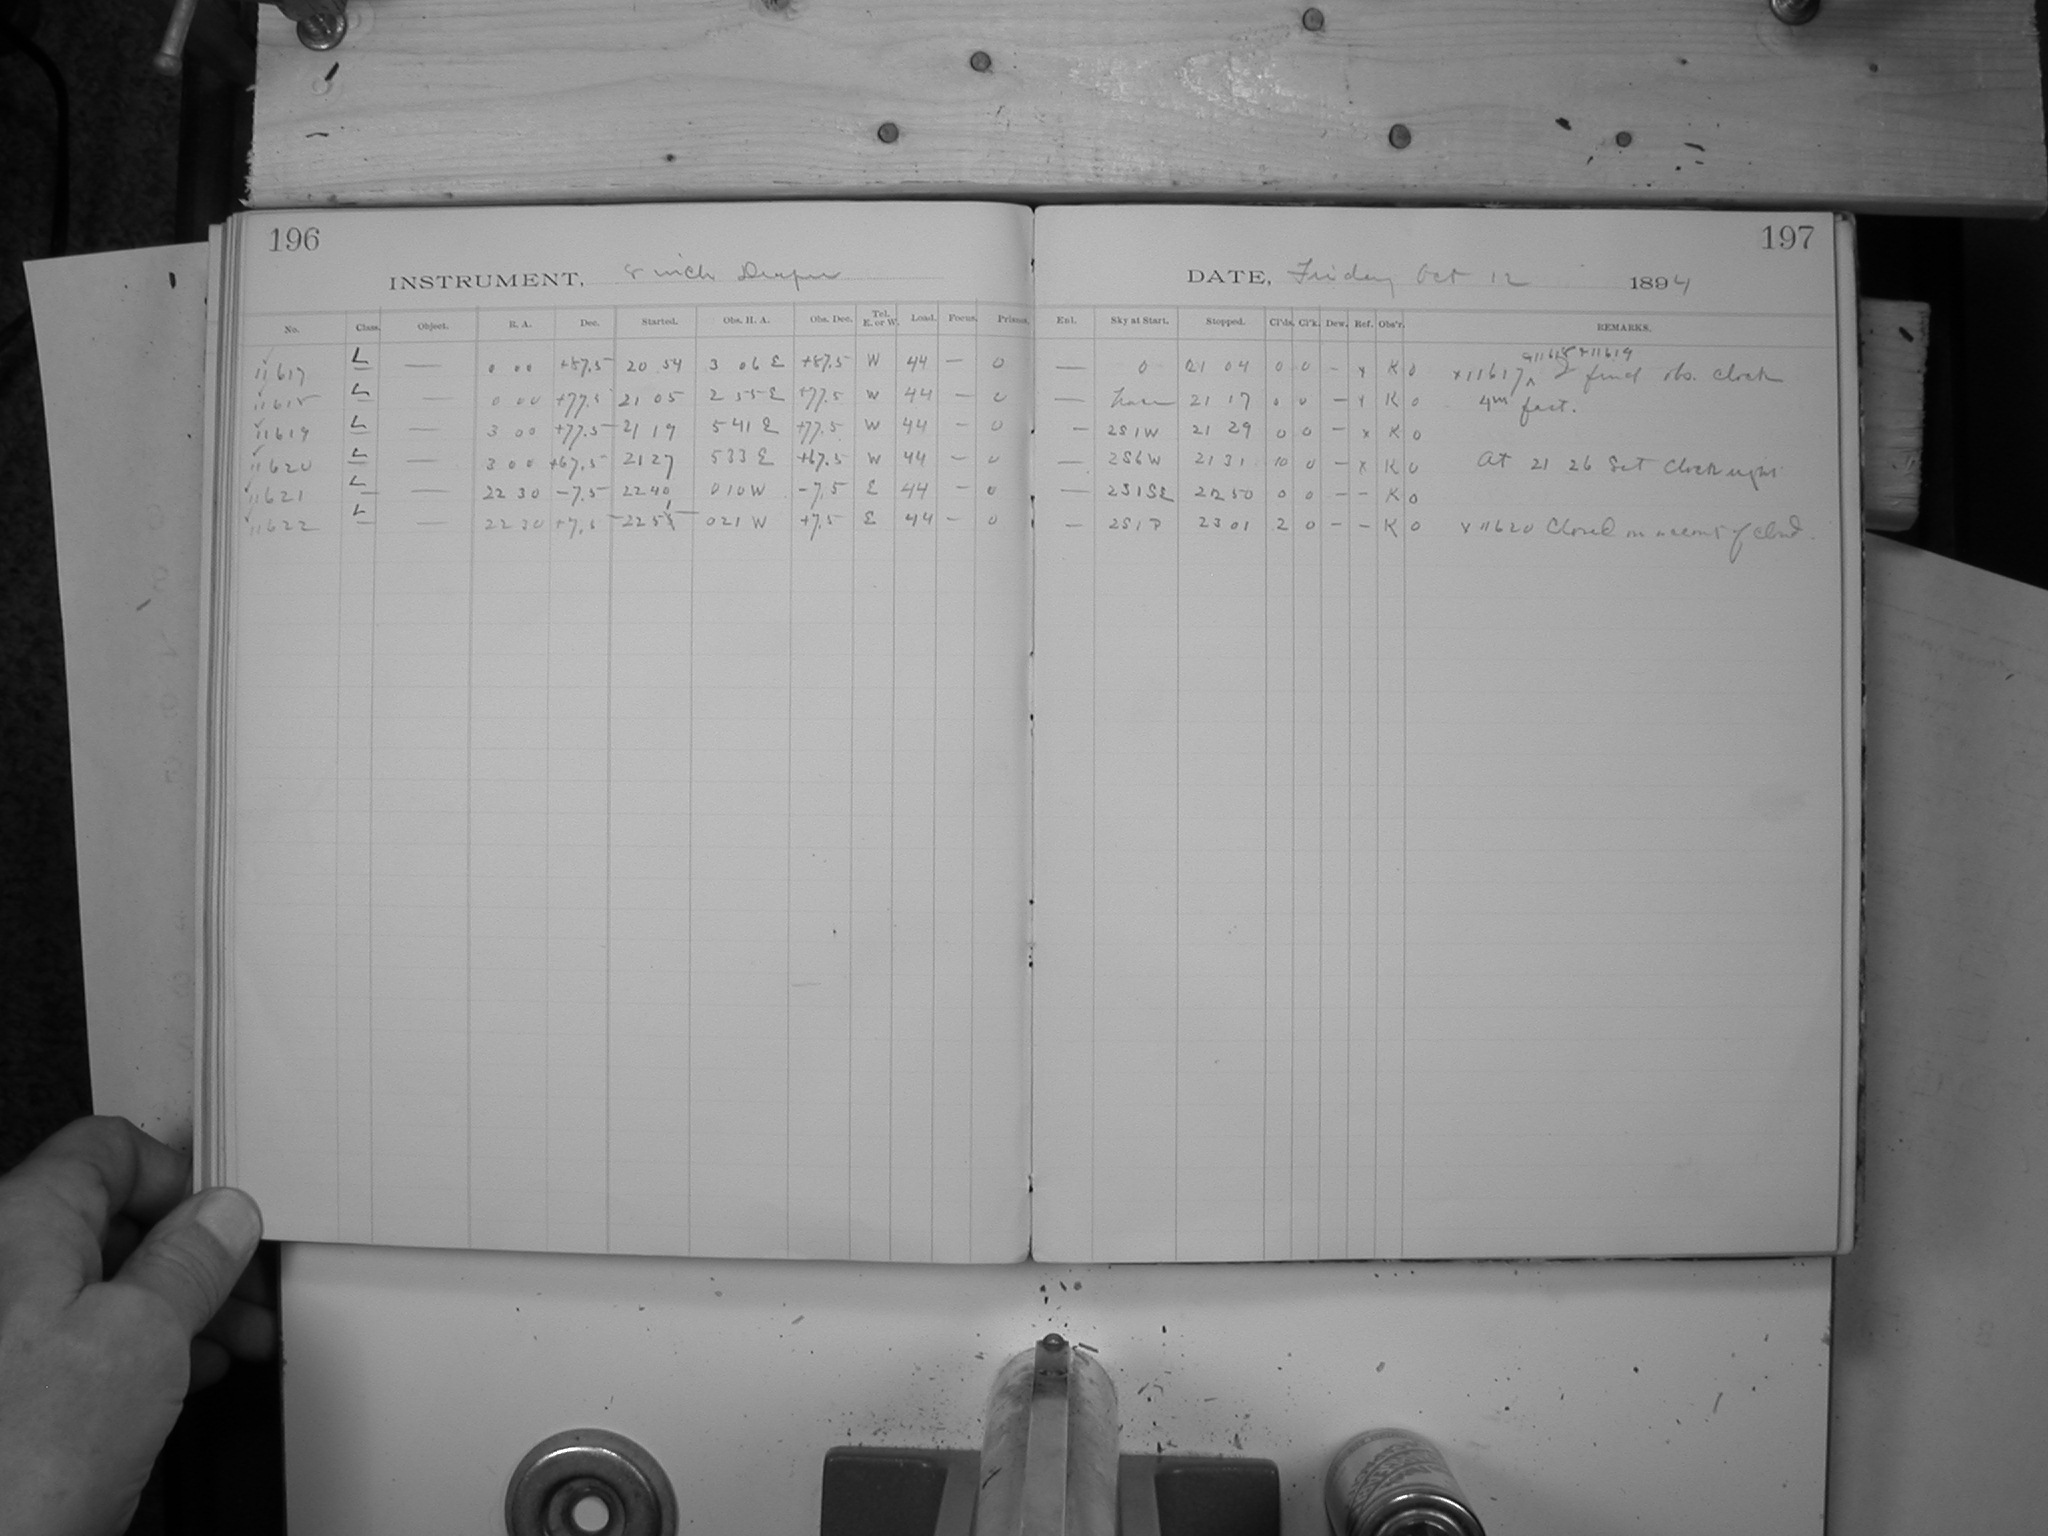 196
INSTRUMENT, 8 inch Draper
No. Class. Object. R. A. Dec. Started. Obs. H. A. Obs. Dec. Tel. E. or W. Load. Focus. Prisms.
11617 L — 0 00 +87.5 20 54 3 06 E +87.5 W 44 — 0
11618 L — 0 00 +77.5 21 05 2 55 E +77.5 W 44 — 0
11619 L — 3 00 +77.5 21 19 5 41 E +77.5 W 44 — 0
11620 L — 3 00 +67.5 21 27 5 33 E +67.5 W 44 — 0
11621 L — 22 30 -7.5 22 40 0 10 W -7.5 E 44 — 0
11622 L — 22 30 +7.5 22 51 0 21 W +7.5 E 44 — 0
197
DATE, Friday Oct 12 1894
Enl. Sky at Start. Stopped. Cl'ds. Cl'k. Dew. Ref. Obs'r. REMARKS.
— 0 21 04 0 0 - x K 0 x11617 & 11618 & 11619 I find obs. clock
— 21 17 0 0 — x K 0 4m fast.
— 2S1W 21 29 0 0 — x K 0
— 2S6W 21 31 10 0 - x K 0 At 21 26 Set Clock right
— 2S1SE 22 50 0 0 - - K 0
— 2S1P 23 01 2 0 - - K 0 x 11620 Closed on account of cloud.